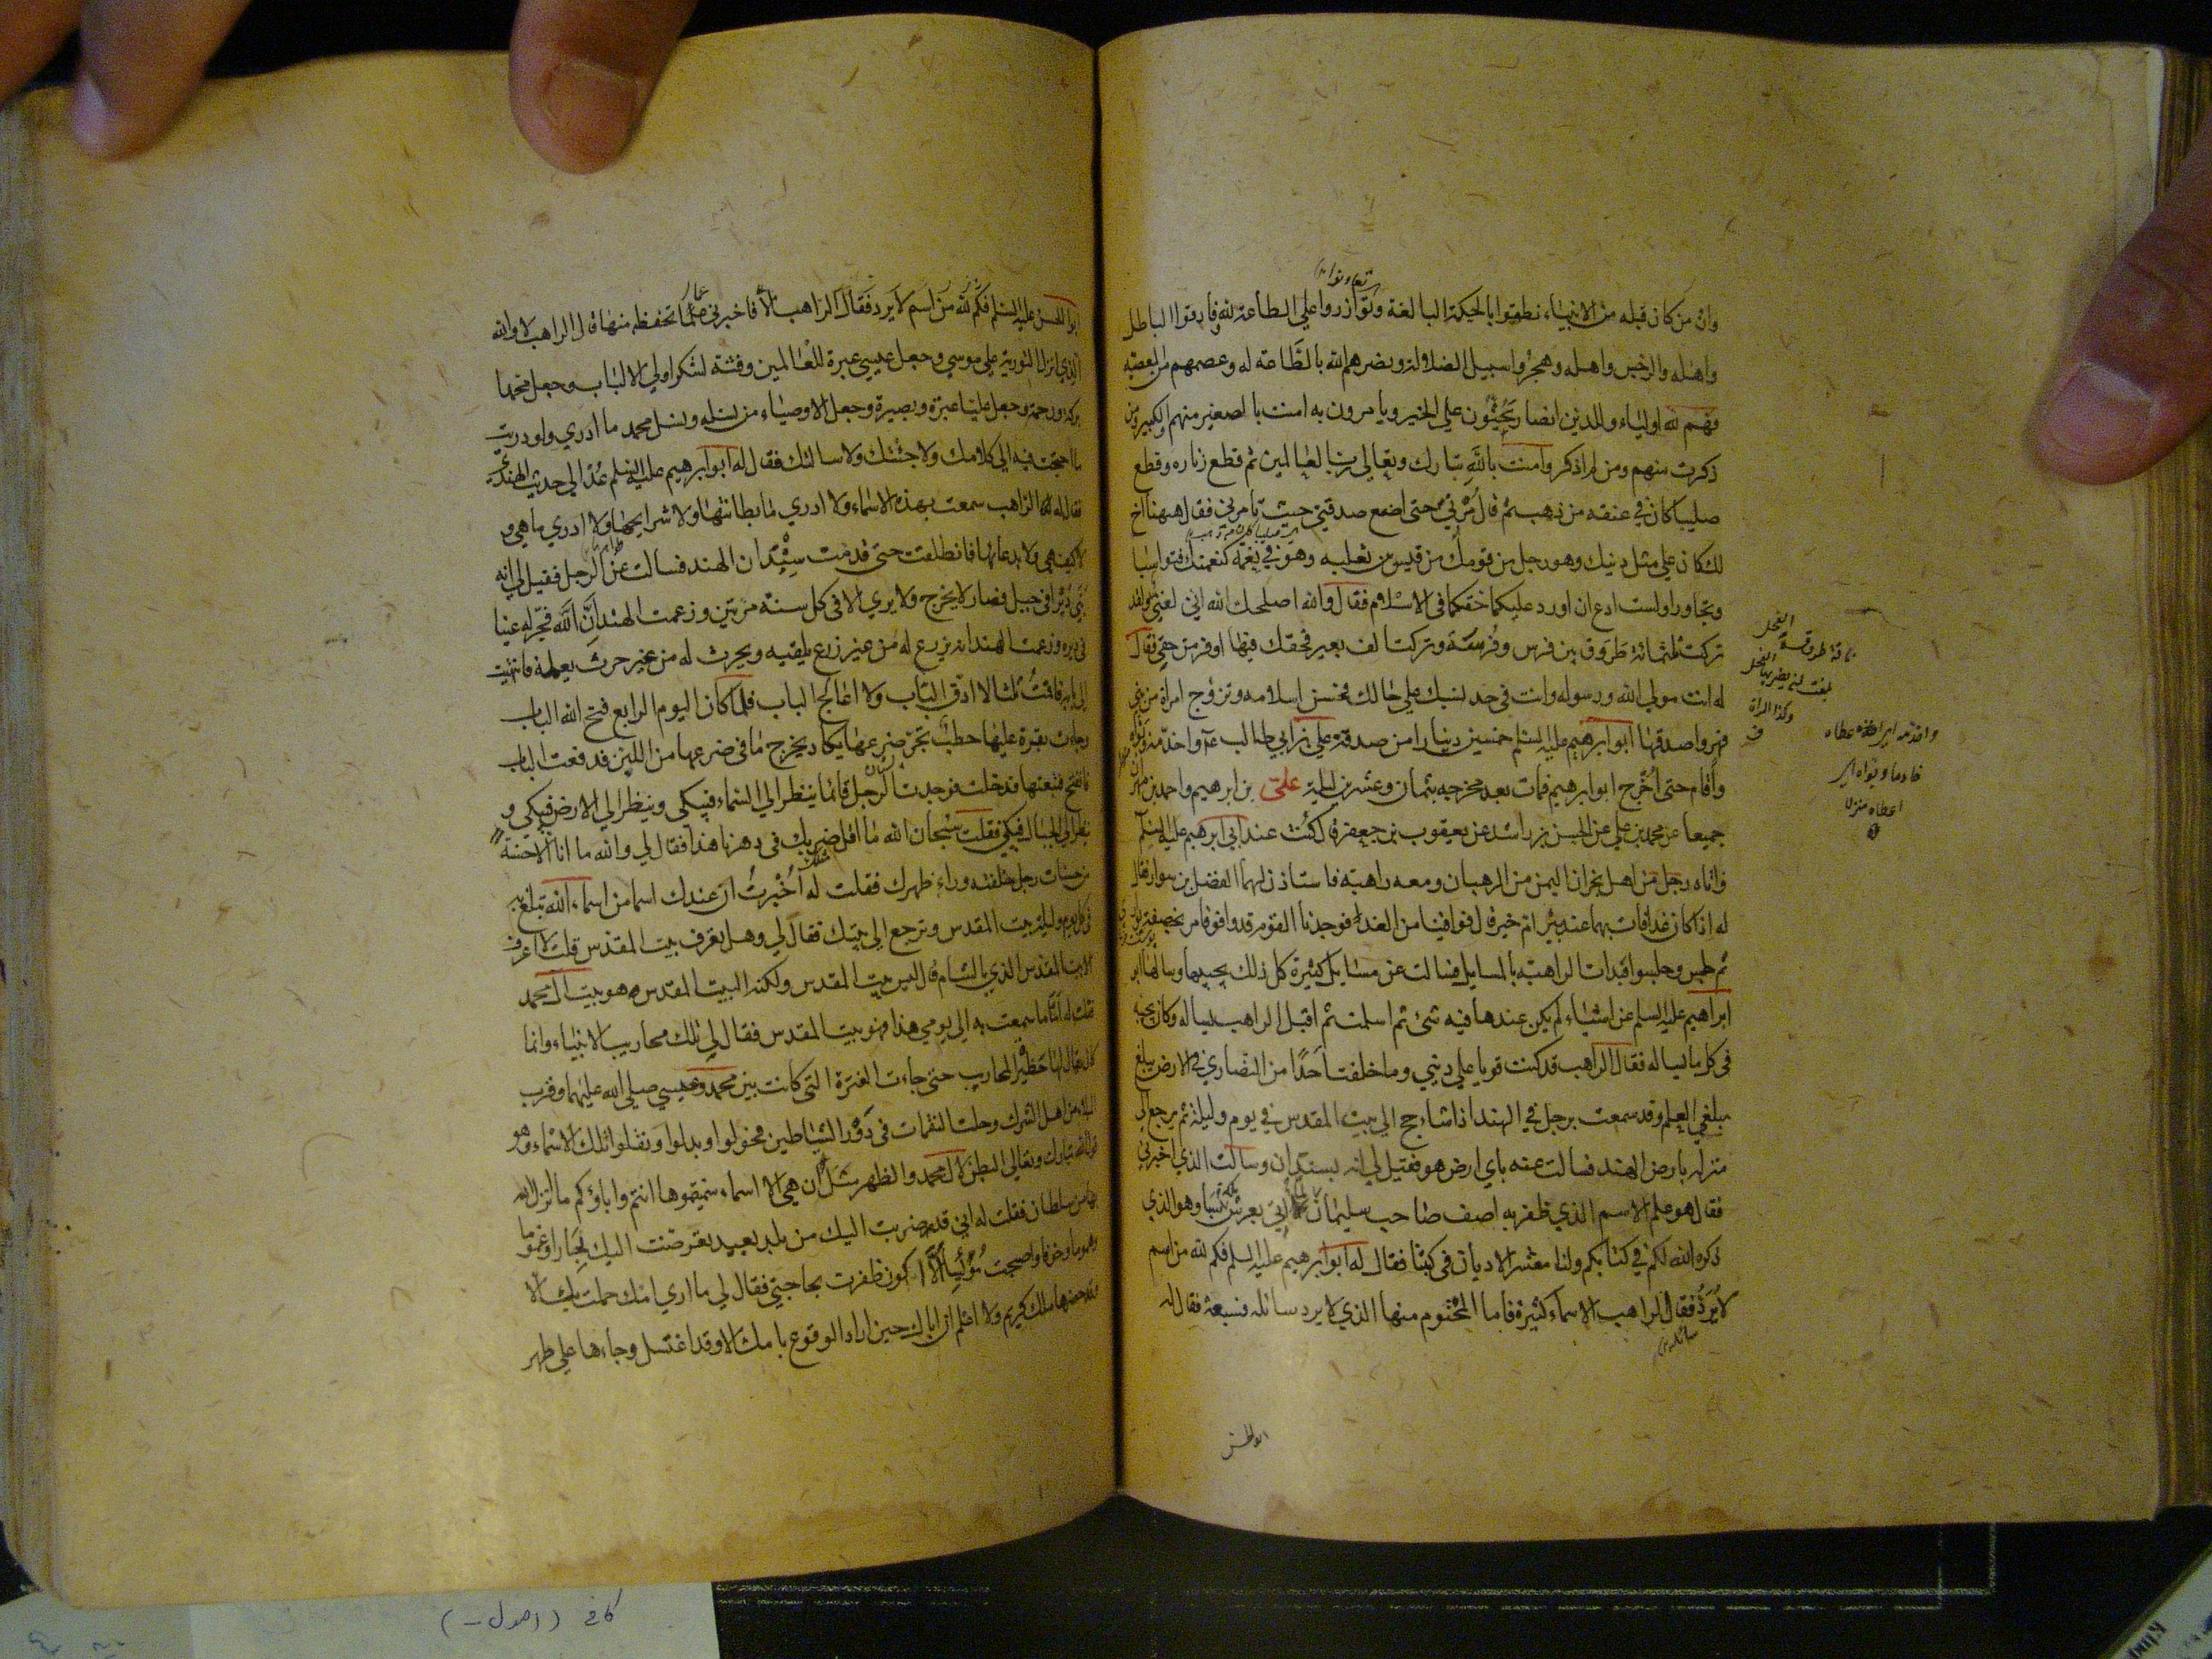 وان من كان قبله من الانبياء نطقوا بالحكمة البالغة وتوازروا علي الطاعة لله وفارقوا الباطل
واهله والرجس واهله وهجروا سبيل الضلالة ونصرهم الله بالطاعة له وعصمهم من المعصية
فهم لله اولياء وللدين انصار يحثون علي الخير ويامرون به امنت بالصغير منهم والكبير ومن
ذكرت منهم ومن لم اذكر وامنت بالله تبارك وتعالي رب العالمين ثم قطع زناره وقطع
صليبا كان في عنقه من ذهب ثم قال مرني حتى اضع صدقتي حيث تامرني فقال ههنا اخ
لك كان علي مثل دينك وهو رجل من قومك من قيس بن ثعلبه وهو في نعمة كنعمتك فتواسيا
وتجاورا ولست ادع ان اورد عليكما حقكما في الاسلام فقال والله اصلحك الله اني لغني ولقد
تركت ثلثمائة طروق بين فرس وفرسة وتركت الف بعير فحقك فيها اوفر من حقي فقال
له انت مولي الله ورسوله وانت في حد نسبك علي حالك فحسن اسلامه وتزوج امراة من بني
فهر واصدقها ابو ابرهيم عليه السلم خمسين دينارا من صدقة علي بن ابي طالب ع واخدمه وبوأه
واقام حتى اخرج ابو ابرهيم فمات بعد مخرجه بثمان وعشرين ليلة علي بن ابرهيم واحمد بن مهران
جميعا عن محمد بن علي عن الحسن بن راشد عن يعقوب بن جعفر قال كنت عند ابي ابرهيم عليه السلم
واتاه رجل من اهل نجران اليمن من الرهبان ومعه راهبه فاستاذن لهما الفضل بن سوار فقال
له اذا كان غدا فات بهما عند بئر ام خير قال فوافينا من الغد فوجدنا القوم قد وافوا فامر بخصفة بواري
ثم جلس وجلسوا فبدات الراهبة بالمسايل فسالت عن مسايل كثيرة كل ذلك يجيبها وسالها ابو
ابراهيم عليه السلم عن اشياء لم يكن عندها فيه شئ ثم اسلمت ثم اقبل الراهب يساله وكان يجيبه
في كل ما يساله فقال الراهب قد كنت قويا علي ديني وما خلفت احدا من النصاري في الارض يبلغ
مبلغي في العلم وقد سمعت برجل في الهند اذا شاء حج الي بيت المقدس في يوم وليلة ثم يرجع الي
منزله بارض الهند فسالت عنه باي ارض هو فقيل لي انه بسبذان وسالت الذي اخبرني
فقال هو علم الاسم الذي ظفر به اصف صاحب سليمان لما اتي بعرش سبا وهو الذي
ذكره الله لكم في كتابكم ولنا معشر الاديان في كتبنا فقال له ابو ابرهيم عليه السلم فكم لله من اسم
لا يرد فقال الراهب الاسماء كثيرة فاما المحتوم منها الذي لا يرد سائله فسبعة فقال له
ابو الحسن
ناقة طروقة الفحل
بلغت ان يضربها الفحل
وكذا المراة
ق
واخدمه ابو ابراهيم اعطاه
خادما وبواه اي
اعطاه منزلا
ابو الحسن عليه السلم فكم لله من اسم لا يرد فقال الراهب لا فاخبرني عما تحفظه منها قال الراهب لا والله
الذي انزل التورية علي موسي وجعل عيسي عبرة للعالمين وفتنة لشكر اولي الالباب وجعل محمدا
بركة ورحمة وجعل عليا عبرة وبصيرة وجعل الاوصياء من نسله ونسل محمد ما ادري ولو دريت
ما احتجت فيه الي كلامك ولا جئتك ولا سالتك فقال له ابو ابرهيم عليه السلم عد الي حديث الهندي
فقال له الراهب سمعت بهذه الاسماء ولا ادري ما بطانتها ولا شرايحها ولا ادري ما هي و
لا كيف هي ولا بدعائها فانطلقت حتى قدمت سبذان الهند فسالت عن الرجل فقيل لي انه
بني ديرا في جبل فصار لا يخرج ولا يري الا في كل سنة مرتين وزعمت الهند ان الله فجر له عينا
في ديره وزعمت الهند انه يزرع له من غير زرع يلقيه ويحرث له من غير حرث يعمله فانتهيت
الي بابه فاقمت ثلثا لا ادق الباب ولا اعالج الباب فلما كان اليوم الرابع فتح الله الباب
وجاءت بقرة عليها حطب تجر ضرعها يكاد يخرج ما في ضرعها من اللبن فدفعت الباب
فانفتح فتبعتها فدخلت فوجدت الرجل قائما ينظر الي السماء فيبكي وينظر الي الارض فيبكي و
ينظر الي الجبال فيبكي فقلت سبحان الله ما اقل ضربك في دهرنا هذا فقال لي والله ما انا الا حسنة
من حسنات رجل خلفته وراء ظهرك فقلت له اخبرت ان عندك اسما من اسماء الله تبلغ به
في كل يوم وليلة بيت المقدس وترجع الي بيتك فقال لي وهل تعرف بيت المقدس قلت لا اعرف
الا بيت المقدس الذي بالشام قال ليس بيت المقدس ولكنه البيت المقدس وهو بيت ال محمد
فقلت له اما ما سمعت به الي يومي هذا فهو بيت المقدس فقال لي تلك محاريب الانبياء وانما
كان يقال لها حظيرة المحاريب حتى جاءت الفترة التي كانت بين محمد وعيسي صلي الله عليهما وقرب
البلاء من اهل الشرك وحلت النقمات في دور الشياطين فحولوا وبدلوا ونقلوا تلك الاسماء وهو
قول الله تبارك وتعالي البطن لال محمد والظهر مثل ان هي الا اسماء سميتموها انتم واباؤكم ما انزل الله
بها من سلطان فقلت له اني قد ضربت اليك من بلد بعيد تعرضت اليك بحارا وغموما
وهموما وخوفا واصبحت مؤيسا الا اكون ظفرت بحاجتي فقال لي ما اري امك حملت بك الا
وقد حضرها ملك كريم ولا اعلم ان اباك حين اراد الوقوع بامك الا وقد اغتسل وجاءها علي طهر
كافي (اصول -)